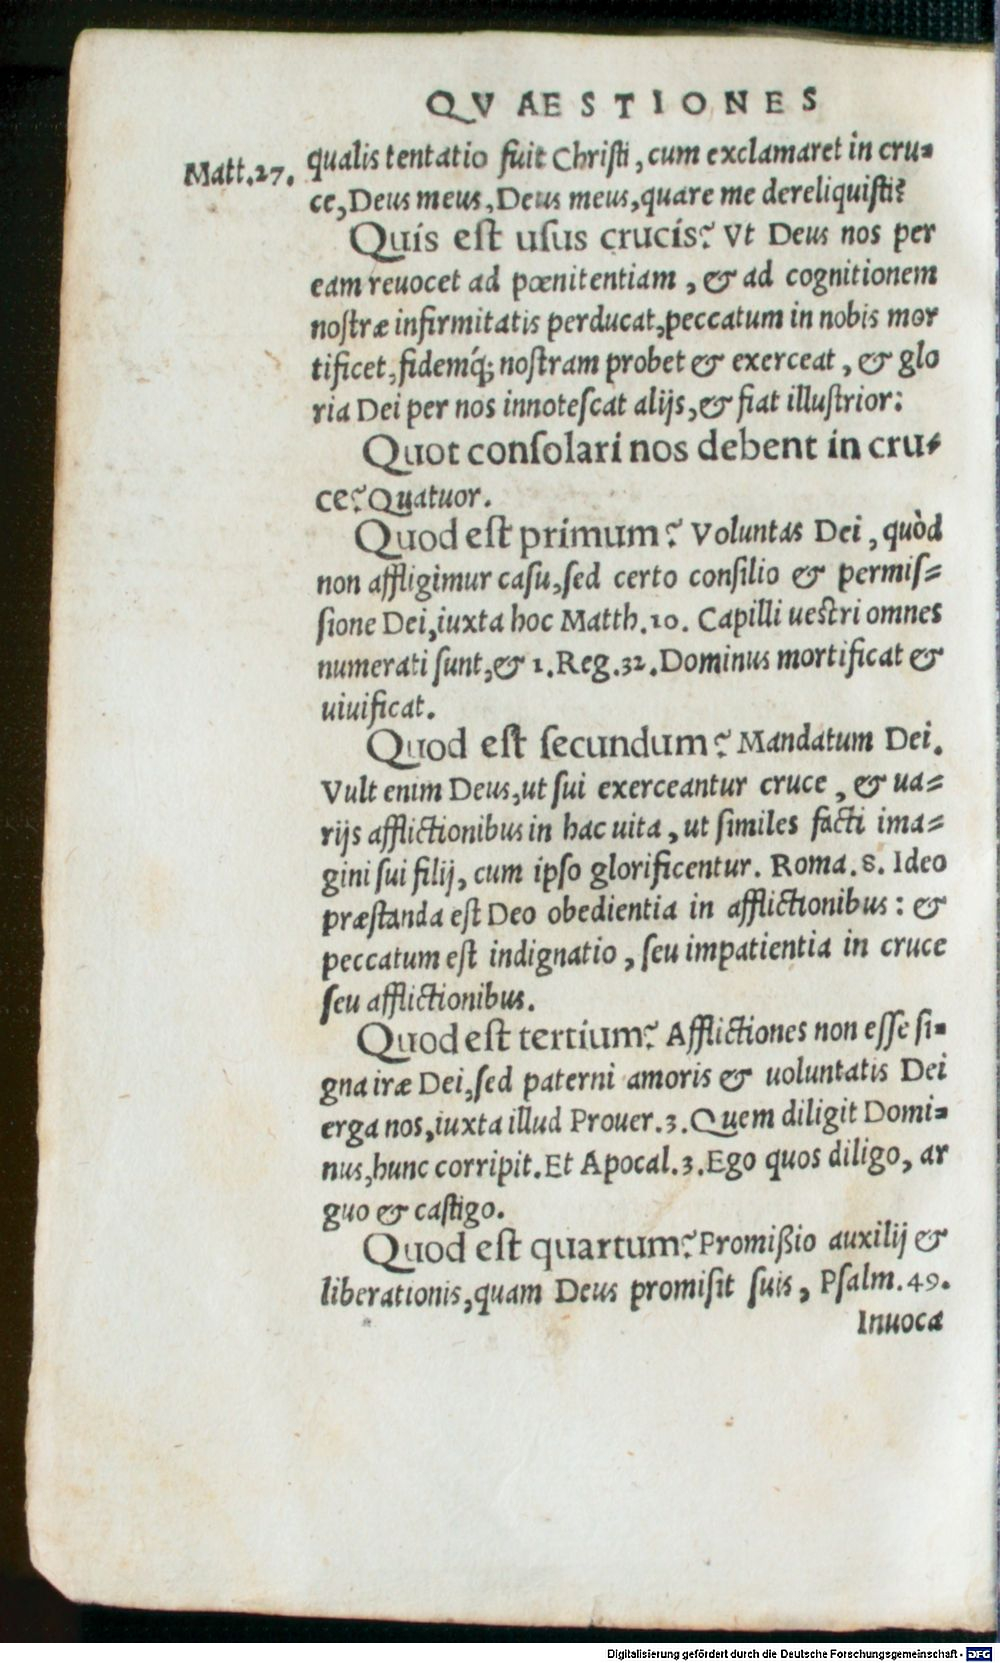 QVAESTIONES
Matt.27. qualis tentatio fuit Christi, cum exclamaret in cru-
ce, Deus meus, Deus meus, quare me dereliquisti?
Quis est usus crucis? Vt Deus nos per
eam reuocet ad pœnitentiam, & ad cognitionem
nostræ infirmitatis perducat, peccatum in nobis mor
tificet, fidemq́; nostram probet & exerceat, & glo
ria Dei per nos innotescat alijs, & fiat illustrior:
Quot consolari nos debent in cru-
ce? Quatuor.
Quod est primum? Voluntas Dei, quòd
non affligimur casu, sed certo consilio & permis-
sione Dei, iuxta hoc Matth.10. Capilli uestri omnes
numerati sunt, & 1.Reg.32. Dominus mortificat &
uiuificat.
Quod est secundum? Mandatum Dei.
Vult enim Deus, ut sui exerceantur cruce, & ua-
rijs afflictionibus in hac uita, ut similes facti ima-
gini sui filij, cum ipso glorificentur. Roma.8. Ideo
præstanda est Deo obedientia in afflictionibus: &
peccatum est indignatio, seu impatientia in cruce
seu afflictionibus.
Quod est tertium? Afflictiones non esse si-
gna iræ Dei, sed paterni amoris & uoluntatis Dei
erga nos, iuxta illud Prouer.3. Quem diligit Domi-
nus, hunc corripit. Et Apocal.3. Ego quos diligo, ar
guo & castigo.
Quod est quartum? Promißio auxilij &
liberationis, quam Deus promisit suis, Psalm.49.
Inuoca
Digitalisierung gefördert durch die Deutsche Forschungsgemeinschaft - DFG